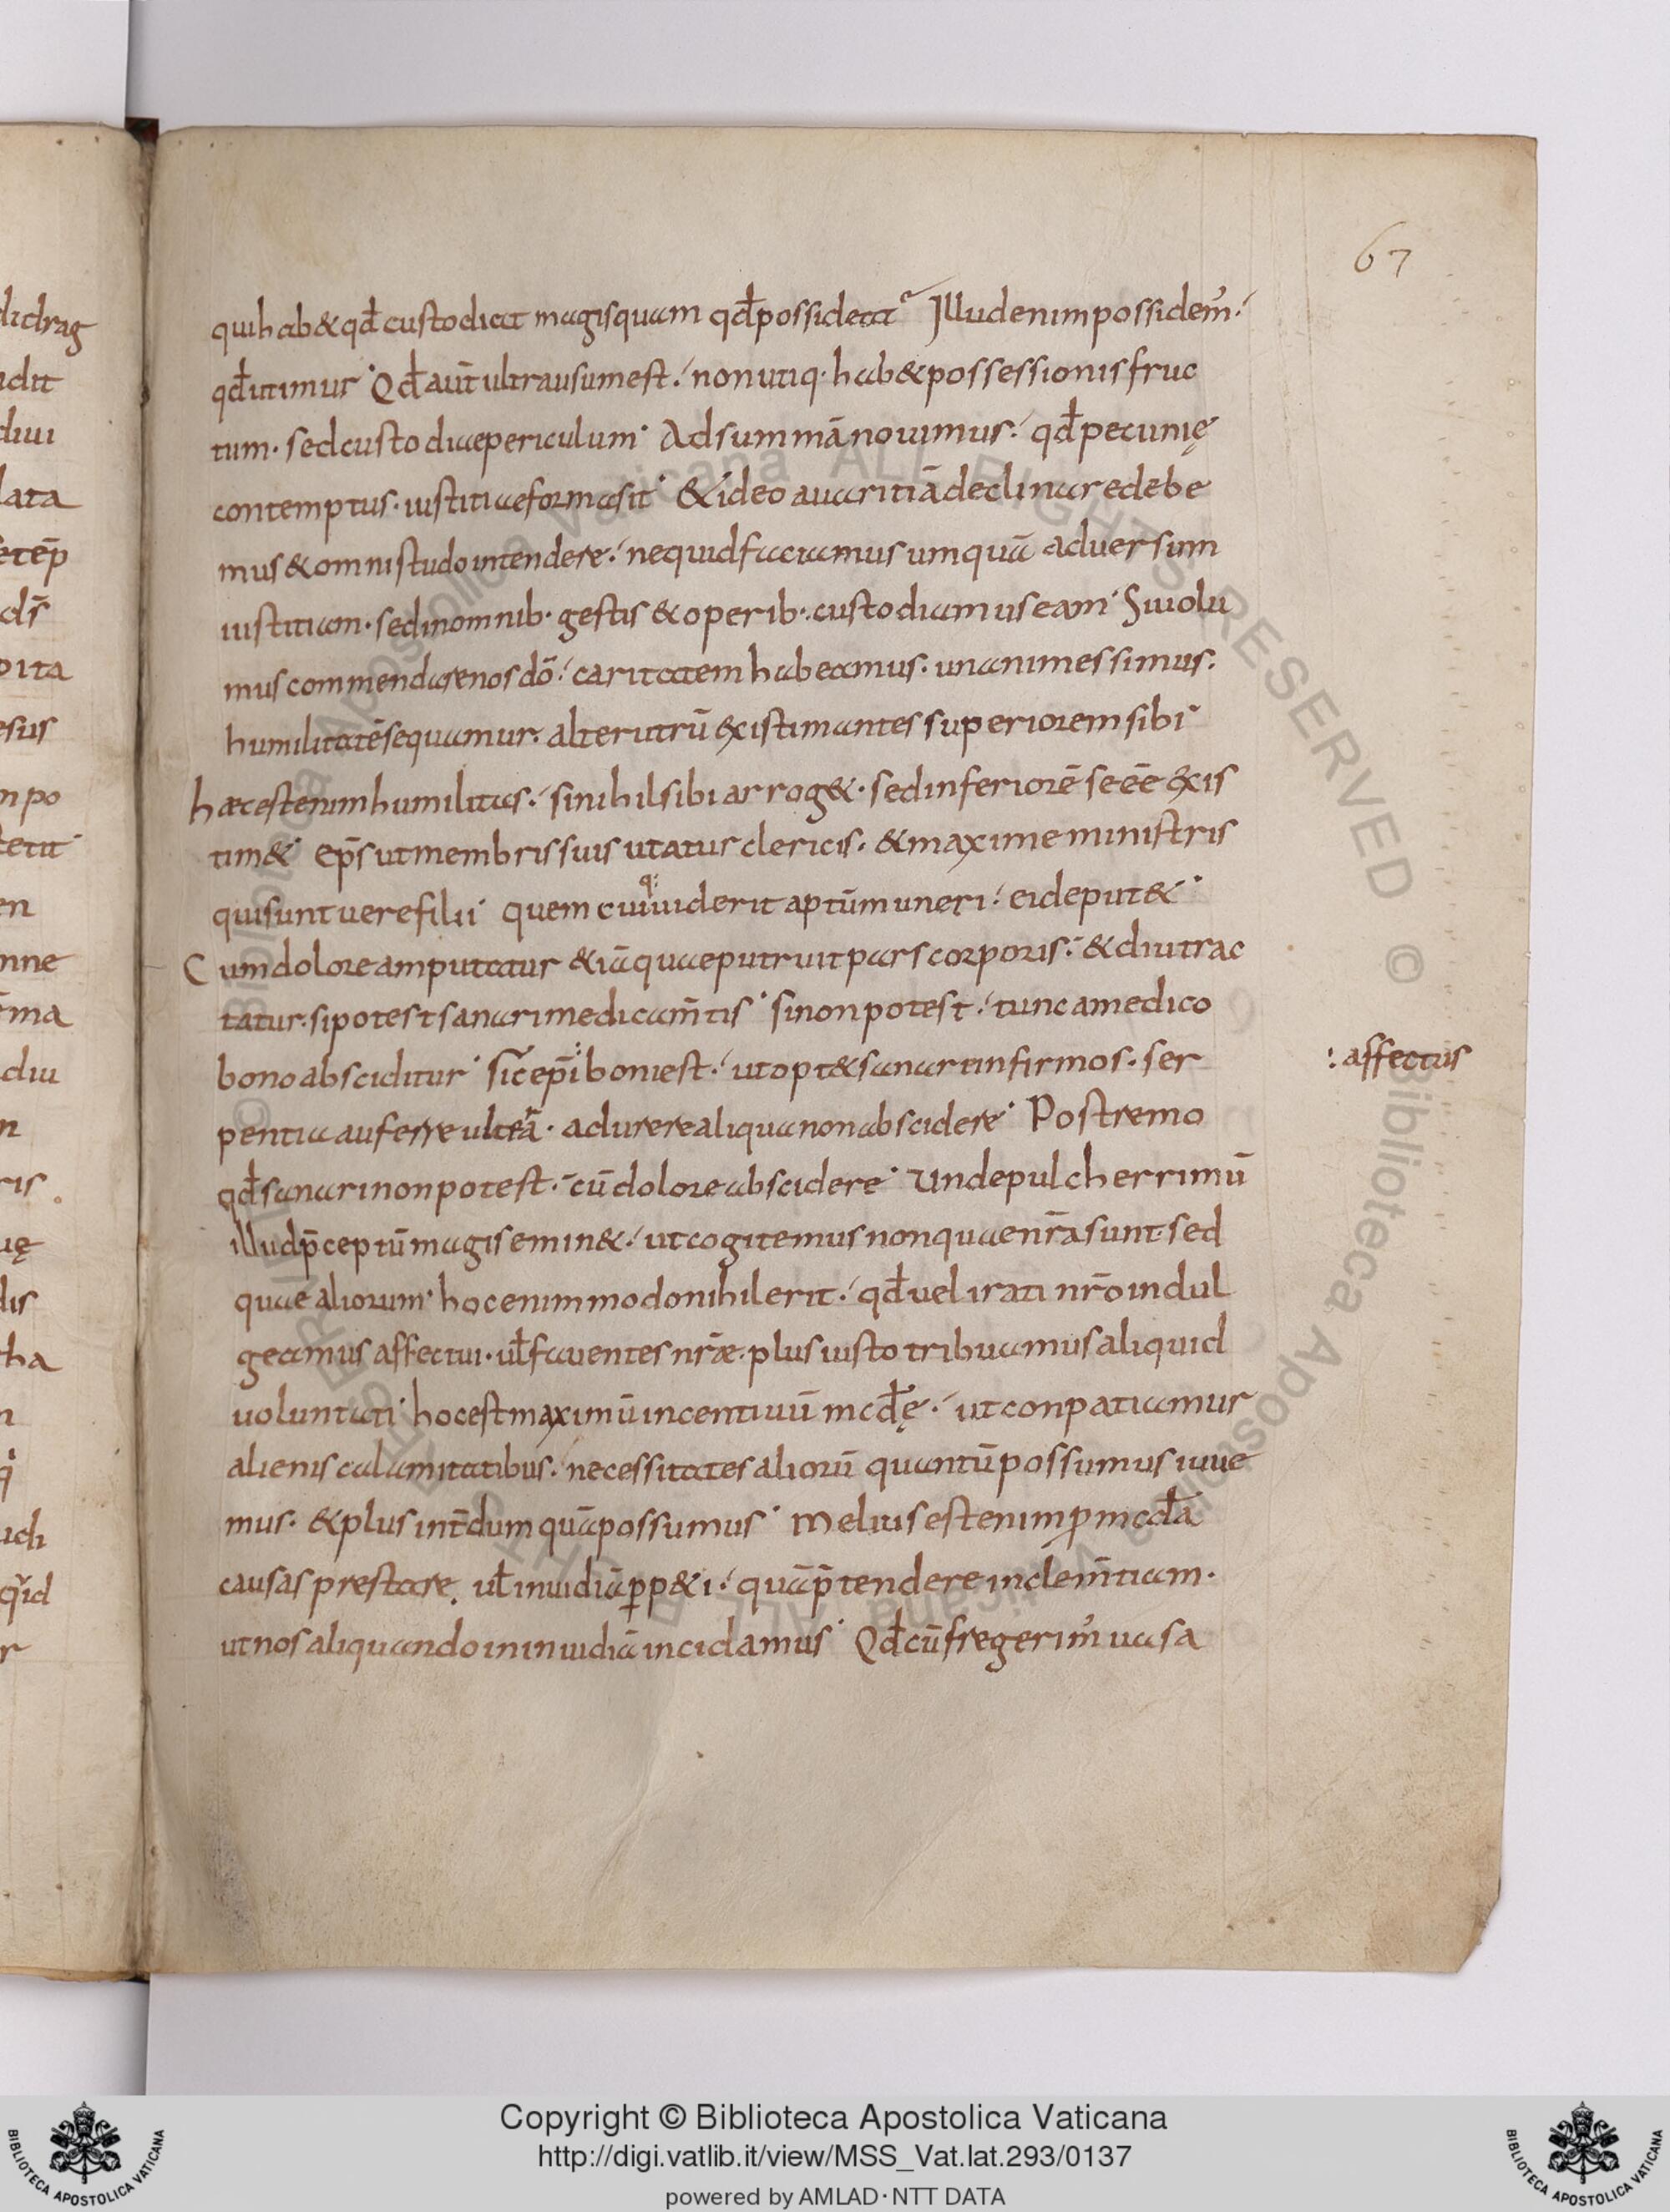 67
qui hab& qđ custodiat magis quam qđ possideat Illud enim possidem᾽
qđ utimur Qđ aut̄ ultra usum est non utiq· hab& possessionis fruc
tum · sed custodiae periculum Ad summā novimus qđ pecunię
contemptus · iustitiae forma sit & ideo auaritiā declinare debe
mus & omni studo intendere nequid faciamus umquā aduersum
iustitiam · sed in omnib· gestis & operib· custodiamus eam Si uolu
mus commendare nos dō caritatem habeamus · unanimes simus ·
humilitatē sequamur · alterutrū existimantes superiorem sibi
haec est enim humilitas · si nihil sibi arrog& · sed inferiorē se ēe exis
tim& ep̄s ut membris suis utatur clericis · & maxime ministris
qui sunt uere filii quem cui q; uiderit aptūm uneri ei deput&
Cum dolore amputatur & iā quae putruit pars corporis & diu trac
tatur · si potest sanari medicam̄tis si non potest tunc a medico
bono absciditur sic ep̄i boni est ut opt& sanare infirmos · ser
: affectus
pentia auferre ulcera · adurere aliqua non abscidere Postremo
qđ sanari non potest cū dolore abscidere Unde pulcherrimū
illud p̄ceptū magis emin& ut cogitemus non quae nr̄a sunt · sed
quae aliorum hoc enim modo nihil erit qđ uel irati nr̄o indul
geamus affectui · ul̄ fauentes nr̄ae · plus iusto tribuamus aliquid
uoluntati hoc est maximū incentiuū mcđę ut conpatiamur
alienis calamitatibus necessitates aliorū quantū possumus iuue
mus · & plus int̄dum quā possumus Melius est enim p mcđa
causas prestare ul̄ inuidiā perp&i quā p̄tendere inclem̄tiam ·
ut nos aliquando in inuidiā incidamus Qđ cū fregerim᾽ uasa
didrag
idit
diui
lata
etēp
ds̄
pita
esus
n po
tetit
en
nne
ma
diu
n
ris
uę
dis
ha
n
udi
qid
r
Copyright © Biblioteca Apostolica Vaticana
http://digi.vatlib.it/view/MSS_Vat.lat.293/0137
powered by AMLAD · NTT DATA
BIBLIOTECA APOSTOLICA VATICANA
BIBLIOTECA APOSTOLICA VATICANA
© Biblioteca Apostolica Vaticana ALL RIGHTS RESERVED © Biblioteca Apostolica Vaticana ALL RIGHTS RESERVED